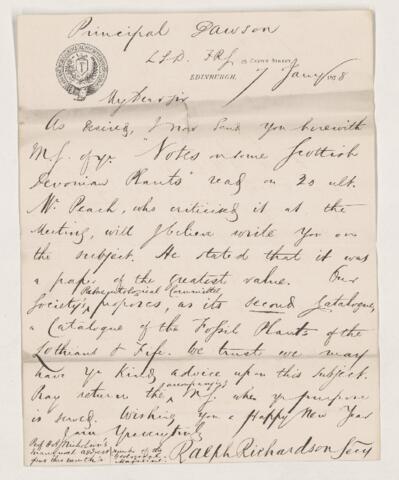 Principal Dawson
LLD. FRS
Castle Street,
EDINBURGH, 7 Jany 1878
My Dear Sir
As desired, I now send you herewith
M.S. of yr "Notes on some Scottish
Devonian Plants" read on 20 ult.
Mr Peach, who criticised it at the
Meeting, will I believe write you on
the subject. He stated that it was
a paper of the greatest value. Our
Society's Palaeontological Committee proposes, as its second Catalogue,
a Catalogue of the Fossil Plants of the
Lothians & Fife. We trust we may
have yr kind advice upon this subject.
Pray return the accompanying M.S. when yr purpose
is served. Wishing you a Happy New Year
I am Yours truly
Ralph Richardson Secy
Prof H A Nicholson's
inaugural address
from this month's
number of the
Geological
Magazine